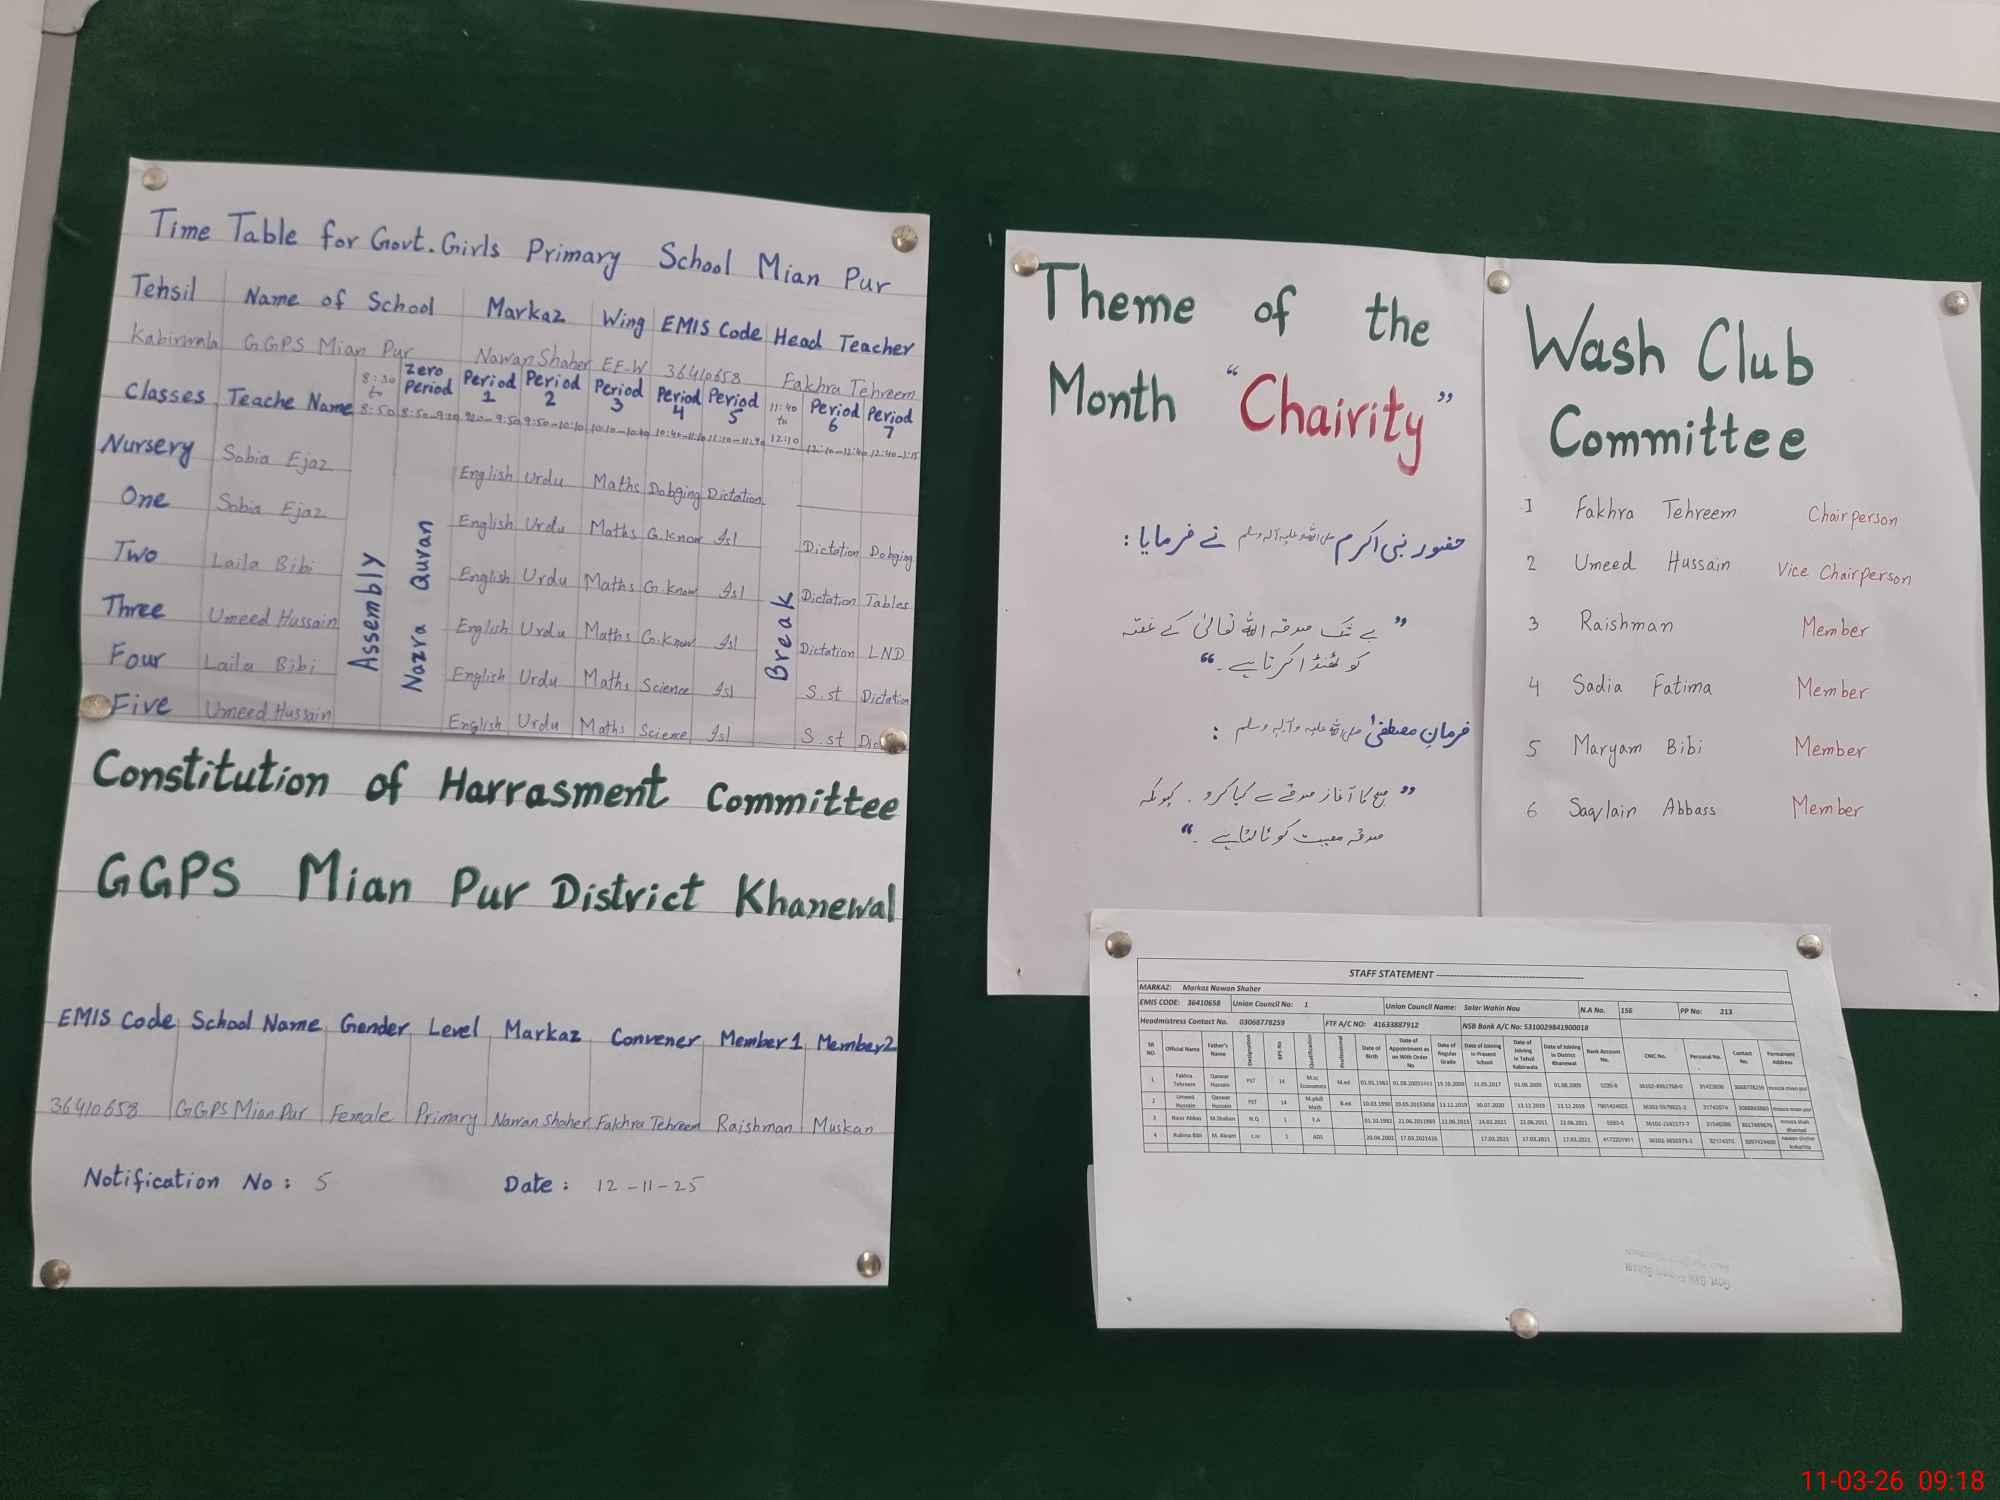 Time Table for Govt. Girls Primary School Mian Pur
Tehsil Name of School Markaz Wing EMIS Code Head Teacher
Kabirwala GGPS Mian Pur Nawan Shaher EE-W 36410658 Fakhra Tehreem
Classes Teache Name 8:30 to 8:50 Zero Period 8:50-9:20 Period 1 9:20-9:50 Period 2 9:50-10:10 Period 3 10:10-10:40 Period 4 10:40-11:10 Period 5 11:10-11:40 11:40 to 12:10 Period 6 12:10-12:40 Period 7 12:40-1:15
Assembly
Nazra Quran
Break
Nursery Sobia Ejaz English Urdu Maths Dobging Dictation
One Sobia Ejaz English Urdu Maths G.Know Isl Dictation Dobging
Two Laila Bibi English Urdu Maths G.Know Isl Dictation Tables
Three Umeed Hussain English Urdu Maths G.Know Isl Dictation LND
Four Laila Bibi English Urdu Maths Science Isl S.st Dictation
Five Umeed Hussain English Urdu Maths Science Isl S.st
Constitution of Harrasment Committee
GGPS Mian Pur District Khanewal
EMIS Code School Name Gender Level Markaz Convener Member 1 Member 2
36410658 GGPS Mian Pur Female Primary Nawan Shaher Fakhra Tehreem Raishman Muskan
Notification No: 5 Date: 12-11-25
Theme of the
Month "Chairity"
حضور نبی اکرم صلی اللہ علیہ وآلہ وسلم نے فرمایا:
"بے شک صدقہ اللہ تعالیٰ کے غصہ
کو ٹھنڈا کرتا ہے۔"
فرمانِ مصطفیٰ صلی اللہ علیہ وآلہ وسلم:
"صبح کا آغاز صدقے سے کیا کرو۔ کیونکہ
صدقہ مصیبت کو ٹالتا ہے۔"
Wash Club
Committee
1 Fakhra Tehreem Chairperson
2 Umeed Hussain Vice Chairperson
3 Raishman Member
4 Sadia Fatima Member
5 Maryam Bibi Member
6 Saqlain Abbass Member
STAFF STATEMENT
MARKAZ: Markaz Nawan Shaher
EMIS CODE: 36410658 Union Council No: 1 Union Council Name: Salar Wahin Nau N.A No. 156 PP No: 213
Headmistress Contact No. 03068778259 FTF A/C NO: 41633887912 NSB Bank A/C No: 5310029841900018
SR NO. Official Name Father's Name Designation BPS No Qualification Professional Date of Birth Date of Appointment as on With Order No Date of Regular Grade Date of Joining in Present School Date of Joining in Tehsil Kabirwala Date of Joining in District Khanewal Bank Account No. CNIC No. Personal No. Contact No. Permanent Address
1 Fakhra Tehreem Hussain PST 14 M.sc Economics M.ed
2 Umeed Hussain Hussain PST 14 M.phill Math B.ed
3 Abbas N.Q 1
4 Rubina Bibi M. Akram 1
11-03-26 09:18